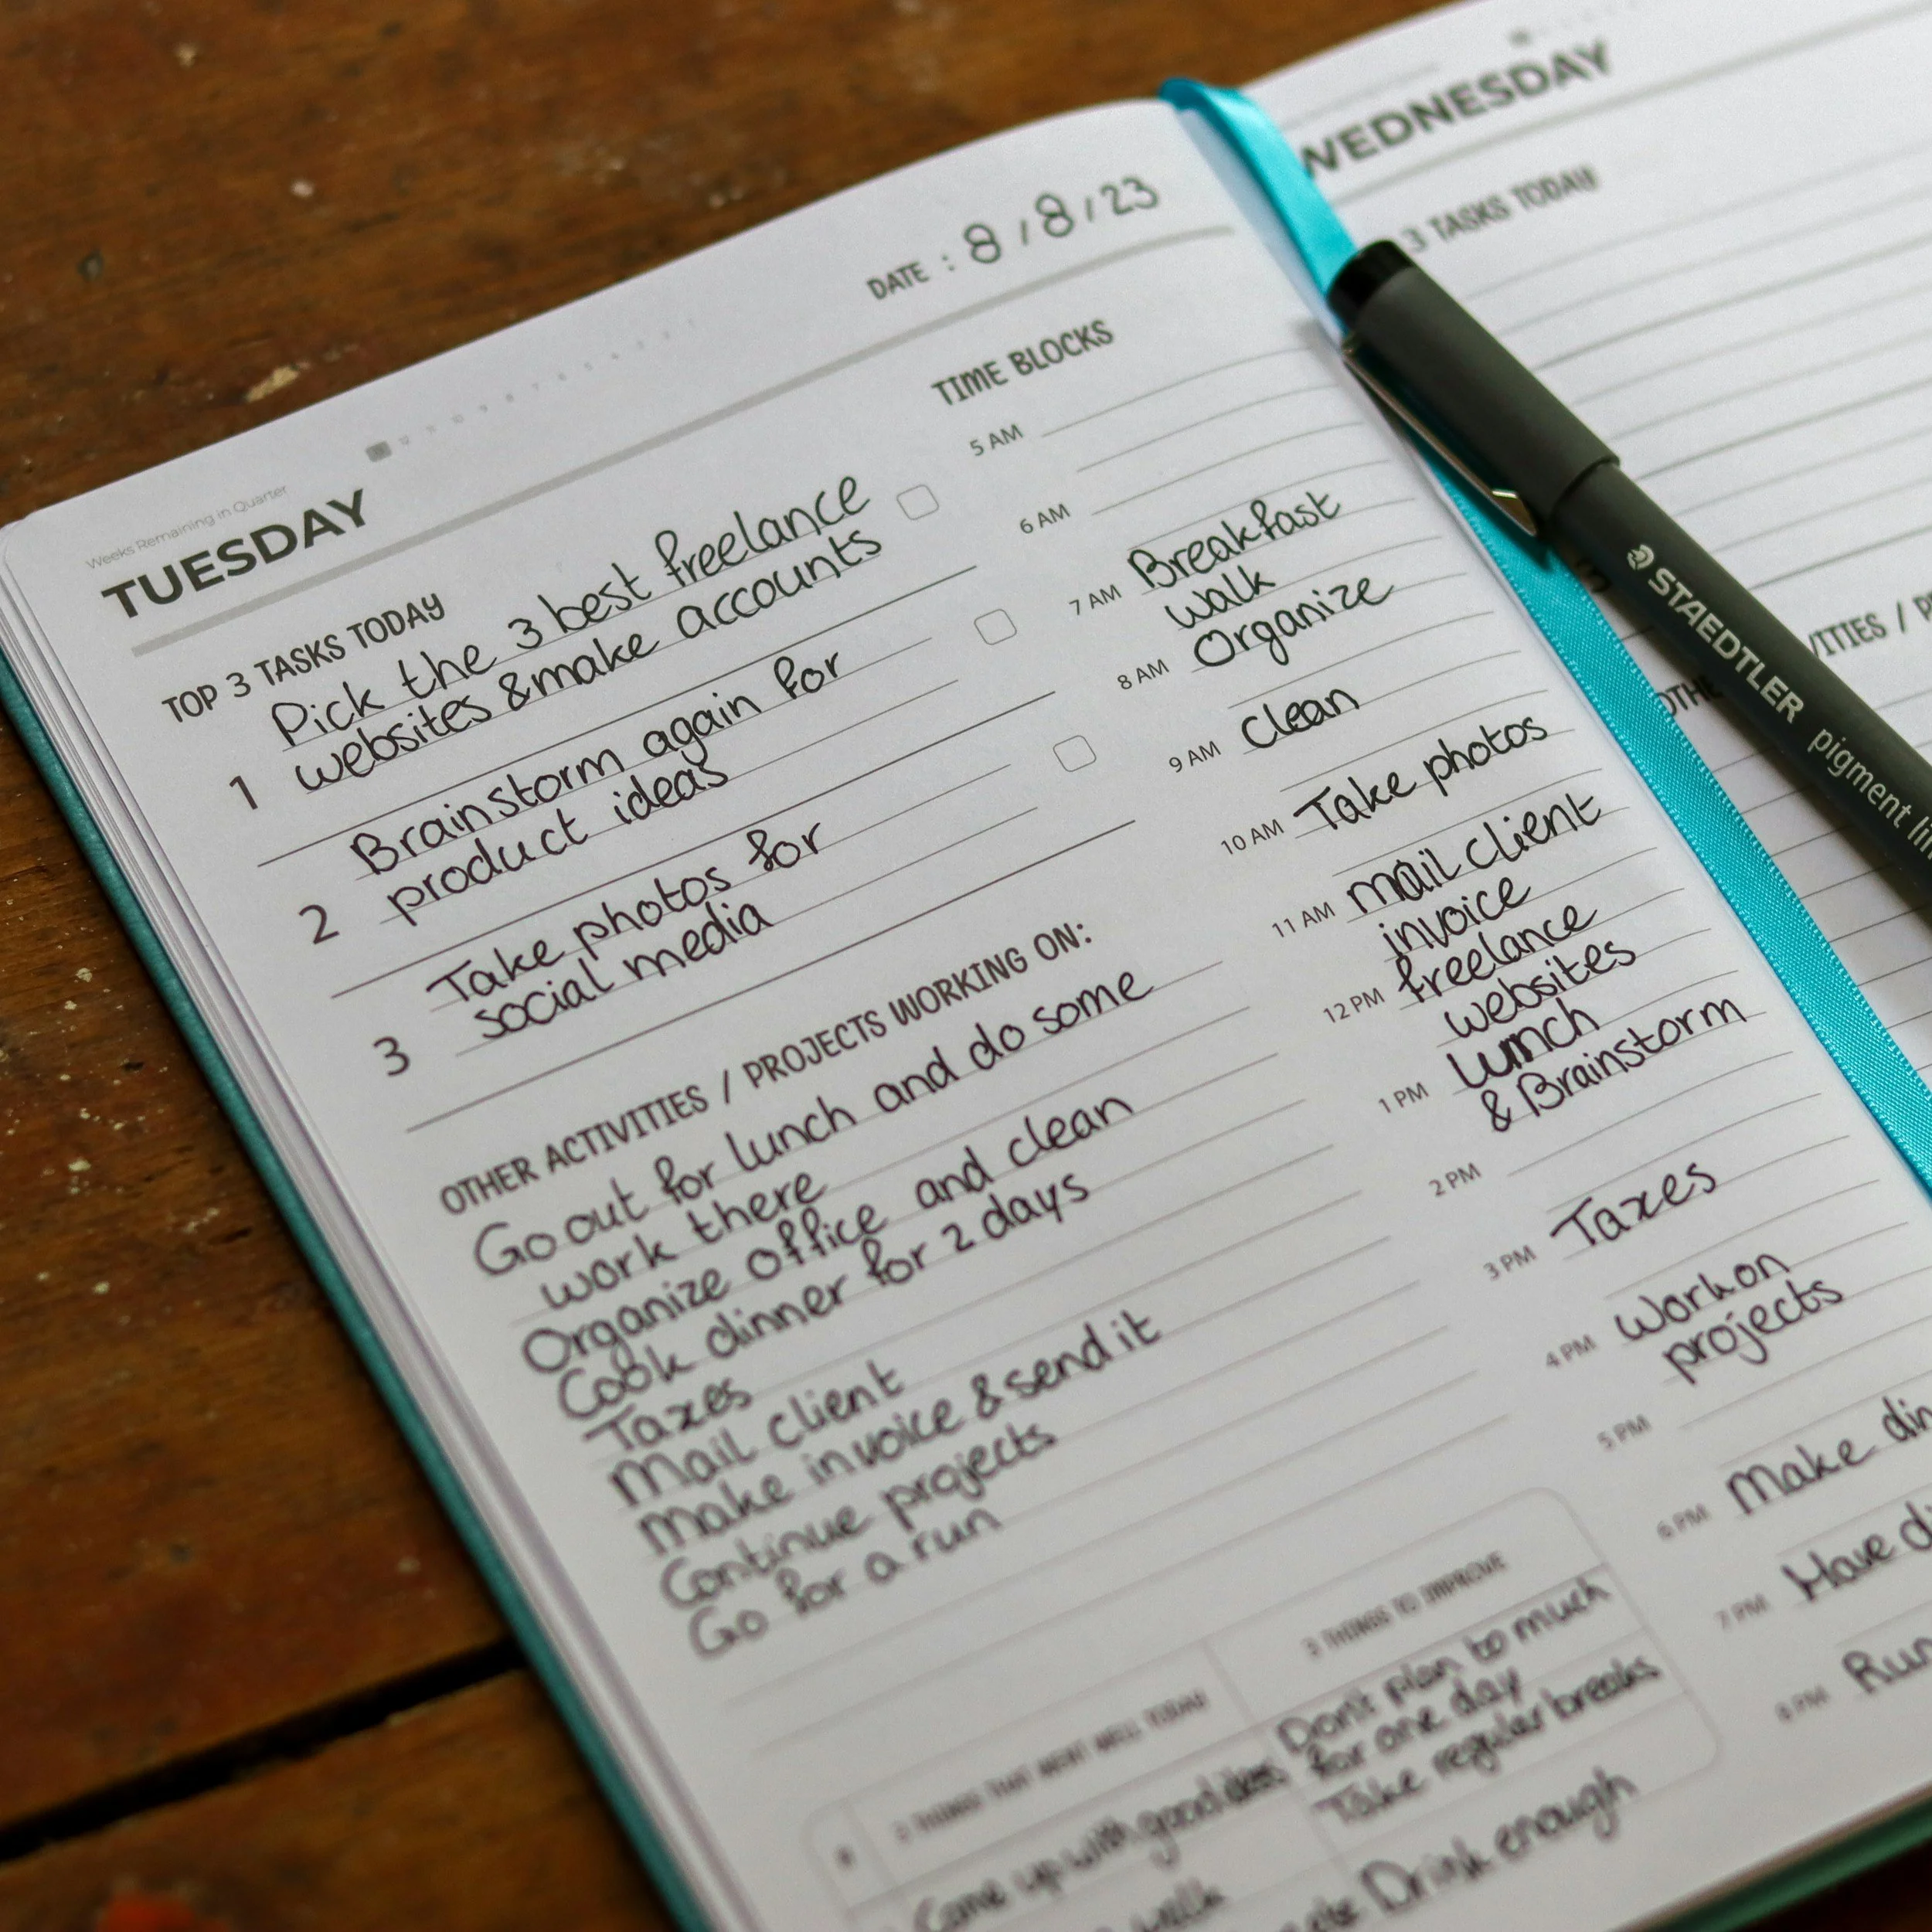 Weeks Remaining in Quarter
TUESDAY
DATE : 8 / 8 / 23
TOP 3 TASKS TODAY
1
Pick the 3 best freelance
websites & make accounts
2
Brainstorm again for
product ideas
3
Take photos for
social media
OTHER ACTIVITIES / PROJECTS WORKING ON:
Go out for lunch and do some
work there
Organize office and clean
Cook dinner for 2 days
Taxes
Mail client
Make invoice & send it
Continue projects
Go for a run
TIME BLOCKS
5 AM
6 AM
7 AM Breakfast
walk
8 AM Organize
9 AM Clean
10 AM Take photos
11 AM mail client
invoice
12 PM freelance
websites
1 PM Lunch
& Brainstorm
2 PM
3 PM Taxes
4 PM Work on
projects
5 PM
6 PM Make
7 PM Have
8 PM Run
THINGS THAT WENT WELL TODAY
Come up with good ideas
walk
3 THINGS TO IMPROVE
Don't plan to much
for one day
Take regular breaks
Drink enough
WEDNESDAY
3 TASKS TODAY
STAEDTLER pigment